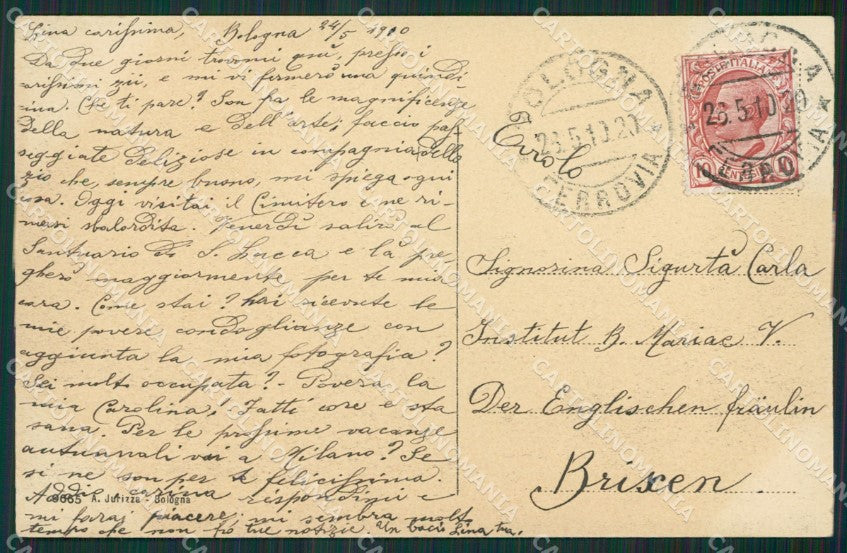 Lina carissima, Bologna 24/5 1910
Da due giorni trovomi quì, presso i
carissimi zii, e mi fermerò una quindi-
cina. Che ti pare? Son fra le magnificenze
della natura e dell'arte; faccio pas-
seggiate deliziose in compagnia dello
zio che, sempre buono, mi spiega ogni
cosa. Oggi visitai il Cimitero e ne ri-
masi sbalordita. Venerdì salirò al
Santuario di S. Lucca e là pre-
gherò maggiormente per te mia
cara. Come stai? hai ricevute le
mie povere condoglianze con
aggiunta la mia fotografia?
Sei molto occupata? - Povera la
mia Carolina! Fatti core e sta
sana. Per le prossime vacanze
autunnali vai a Milano? Se
sì ne son per te felicissima.
Addio carina rispondimi e
mi farai piacere; mi sembra molto
tempo che non ho tue notizie. Un bacio Lina tua.
9665 A. Jutizza - Bologna
Tirolo
BOLOGNA
26.5.10.20
FERROVIA
POSTE ITALIANE
10 CENT. 10
BOLOGNA
26.5.10.20
FERROVIA
Signorina Sigurtà Carla
Institut B. Mariae V.
Der Englischen fräulin
Brixen
CARTOLINOMANIA